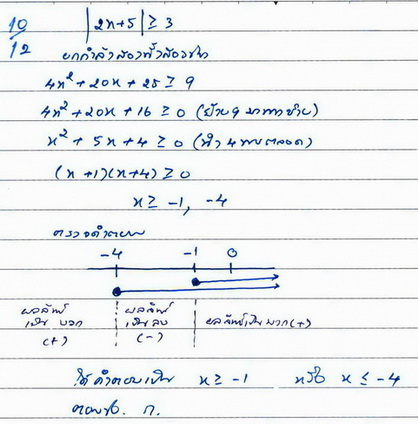 10
12
|2x+5| ≥ 3
ยกกำลังสองทั้งสองข้าง
4x²+20x+25 ≥ 9
4x²+20x+16 ≥ 0 (ย้าย 9 มาทางซ้าย)
x²+5x+4 ≥ 0 (นำ 4 หารตลอด)
(x+1)(x+4) ≥ 0
x ≥ -1, -4
ตรวจคำตอบ
-4 -1 0
ผลลัพธ์ เป็น บวก (+)
ผลลัพธ์ เป็น ลบ (-)
ผลลัพธ์เป็นบวก (+)
ได้คำตอบเป็น x ≥ -1 หรือ x ≤ -4
ตอบข้อ. ก.